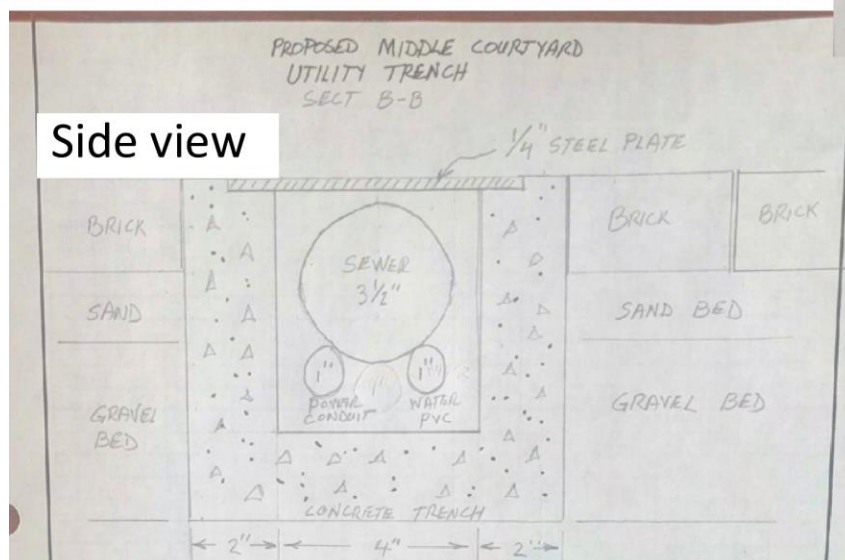 PROPOSED MIDDLE COURTYARD
UTILITY TRENCH
SECT B-B
Side view
1/4" STEEL PLATE
BRICK
BRICK
BRICK
SEWER
3 1/2"
SAND
SAND BED
1"
1"
POWER
CONDUIT
WATER
PVC
GRAVEL
BED
GRAVEL BED
CONCRETE TRENCH
2"
4"
2"